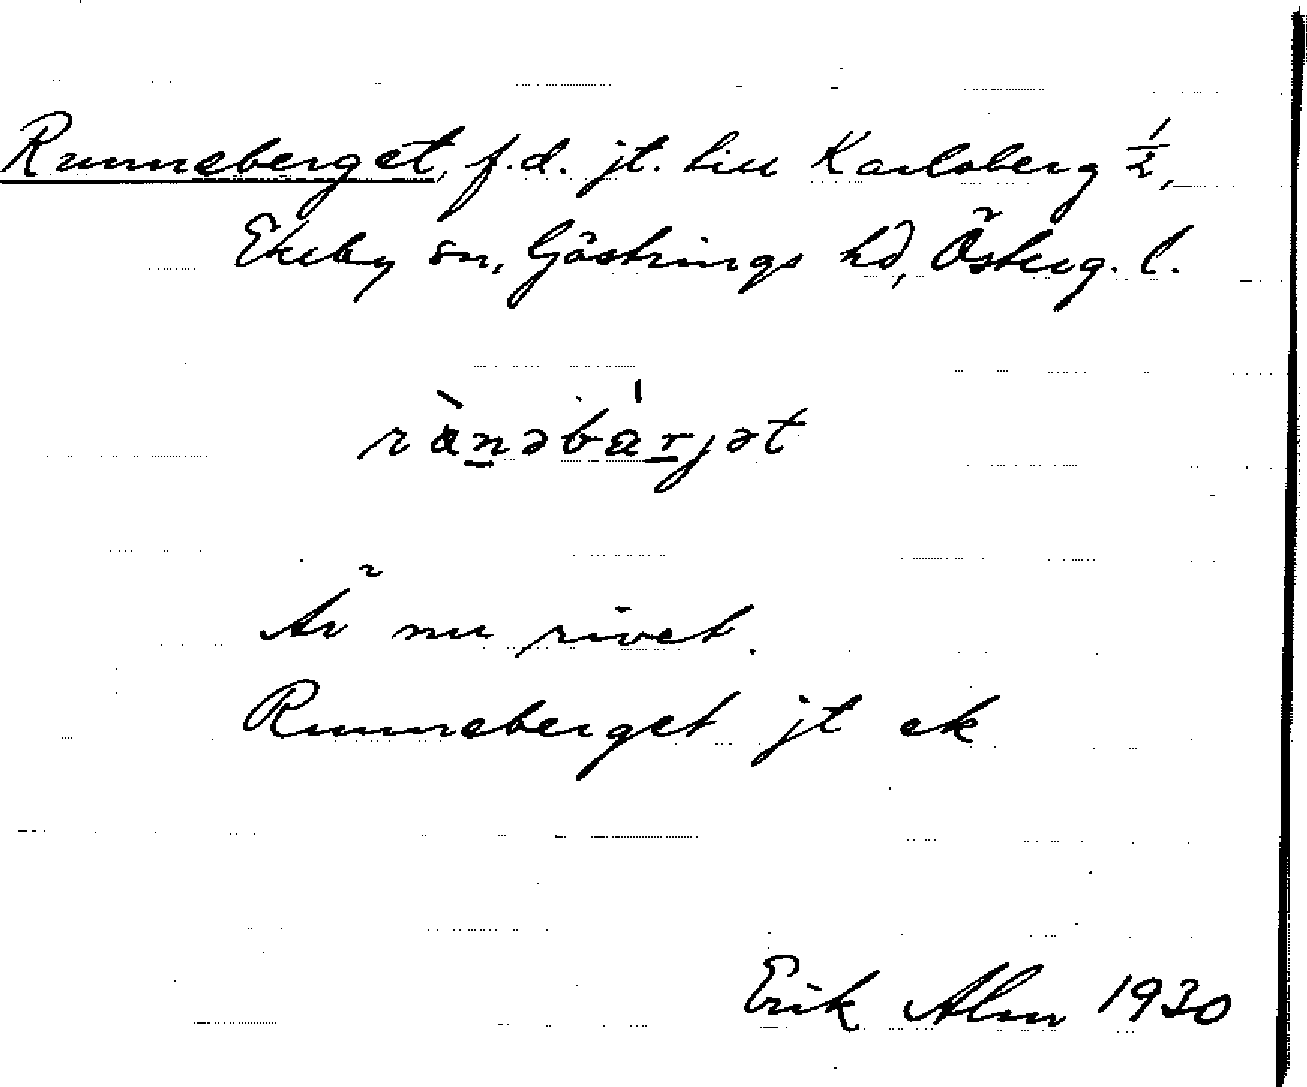 Runneberget, f.d. jt. till Karlsberg 1/2,
Ekeby sn, Göstrings hd, Österg. l.
rànəbárjət
Är nu rivet.
Runneberget jt ek
Erik Alm 1930